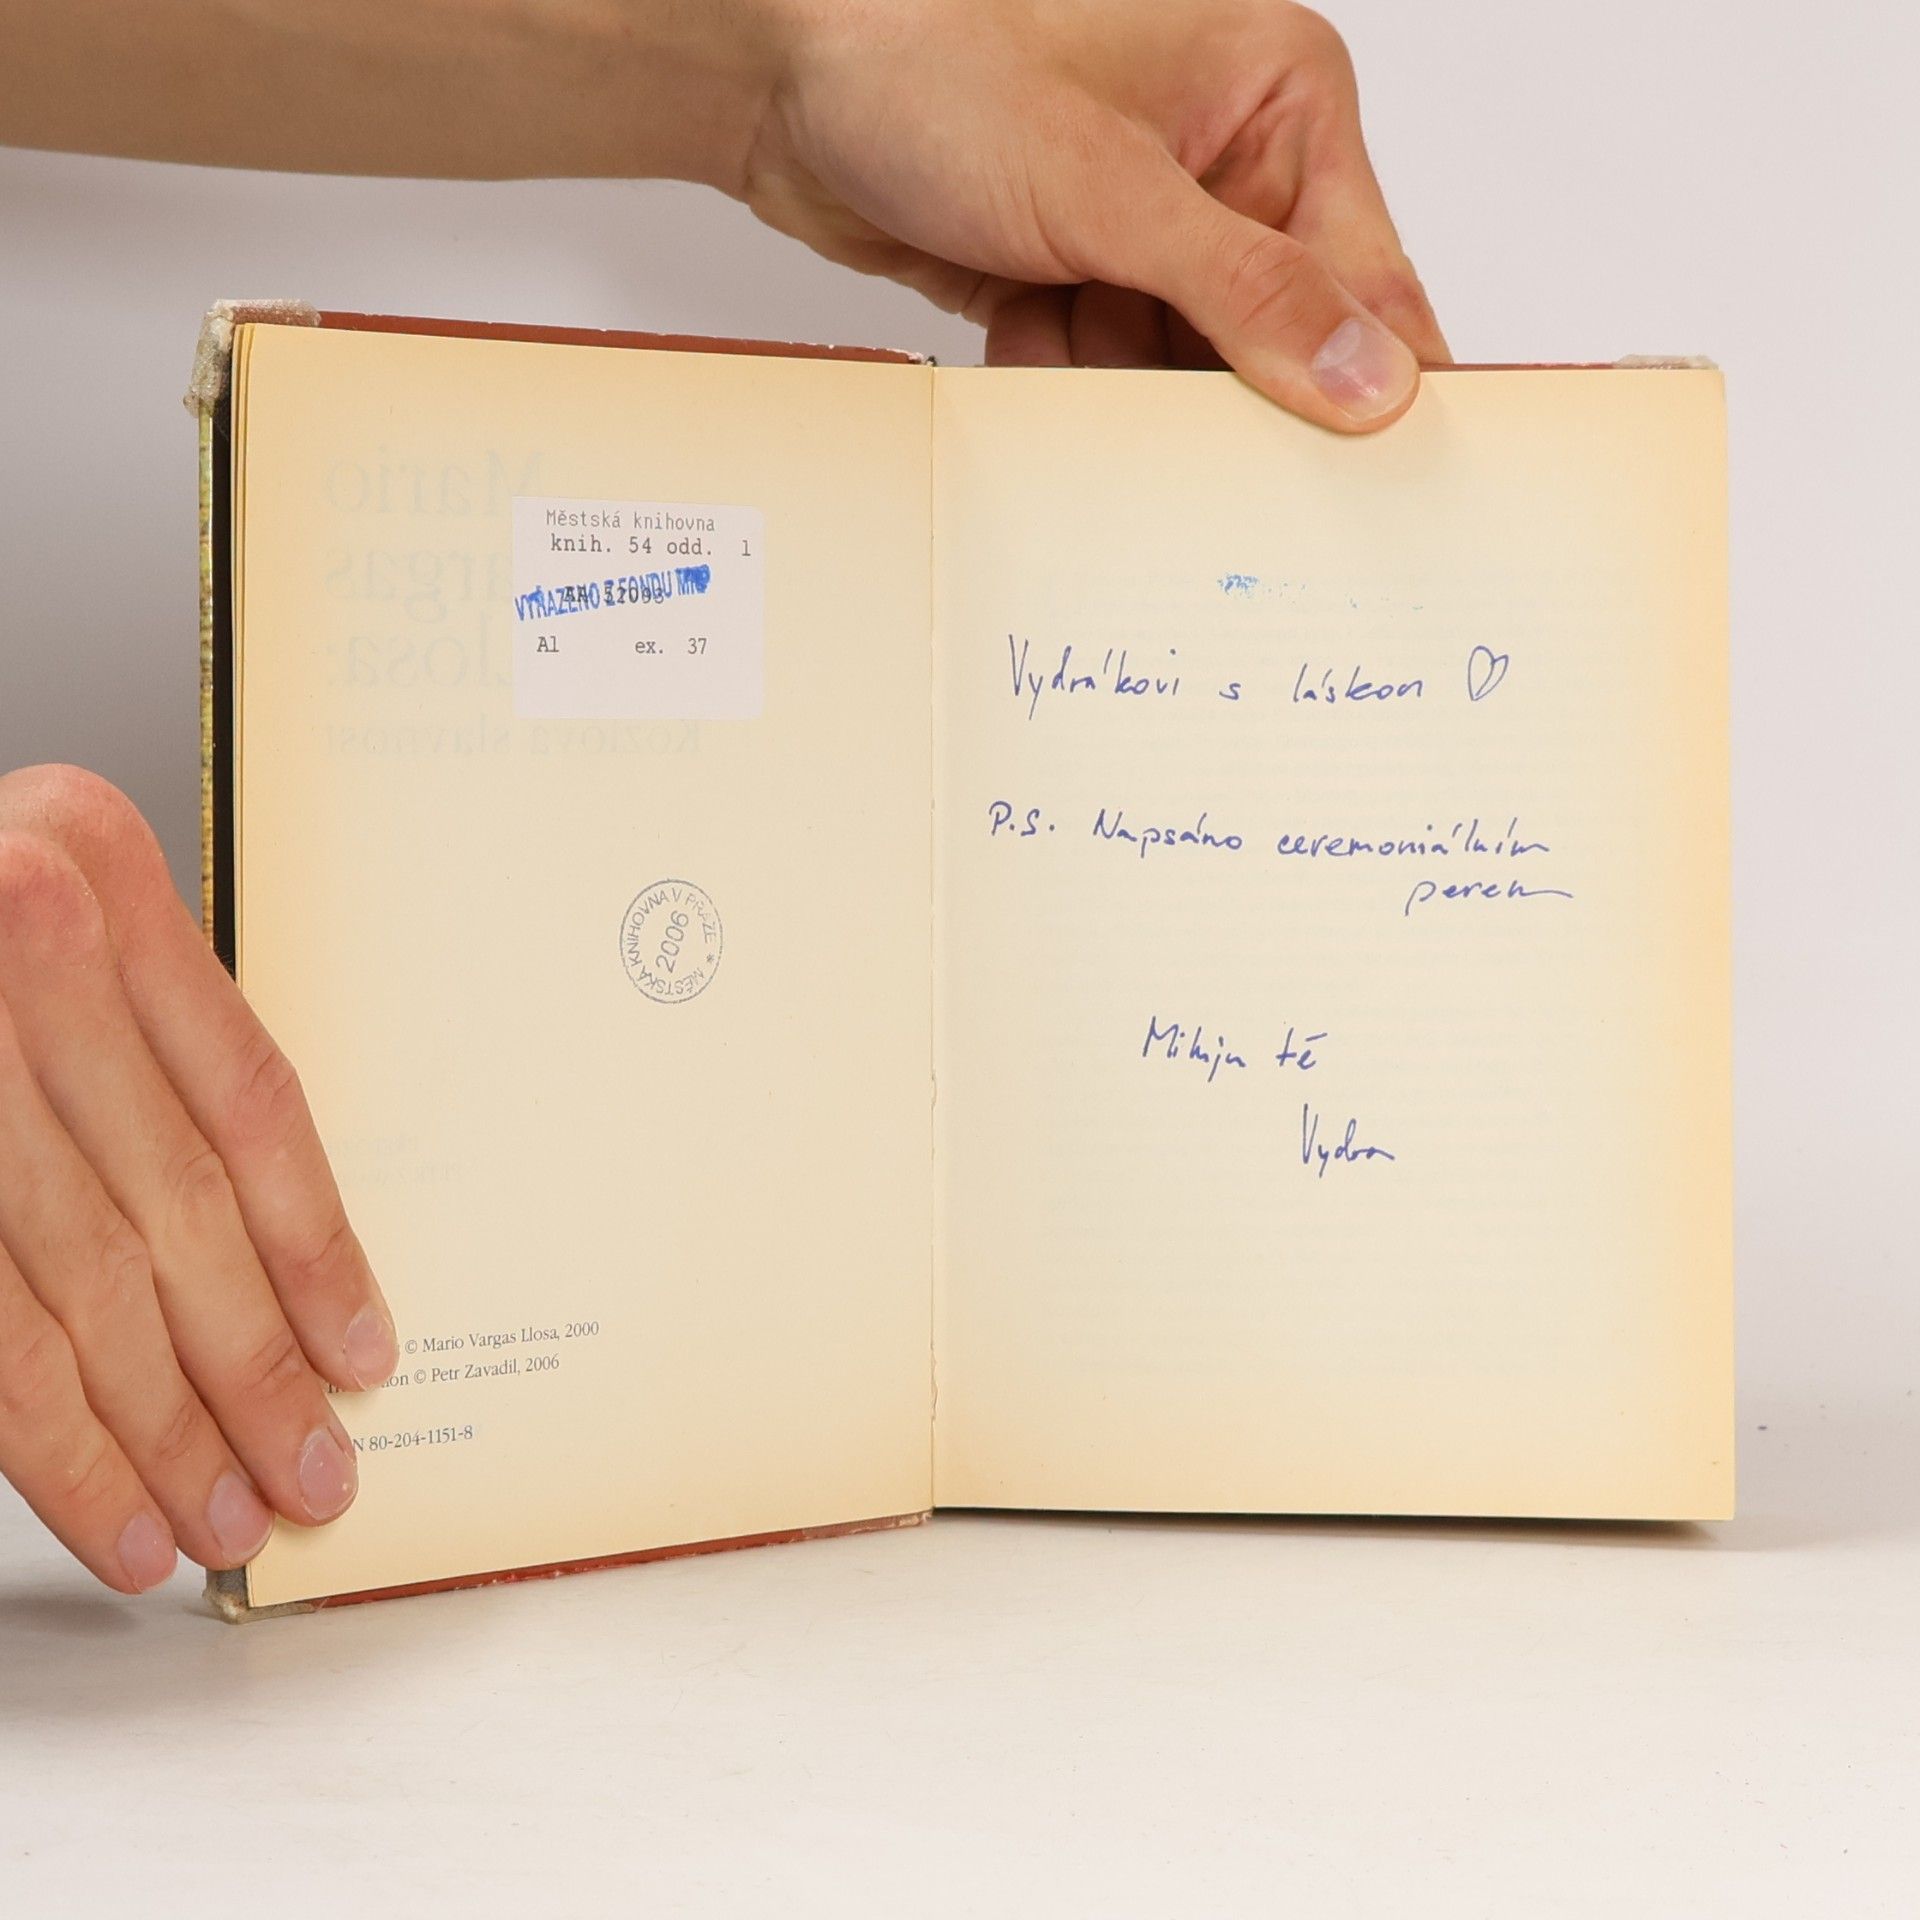 Městská knihovna
knih. 54 odd. 1
VYŘAZENO Z FONDU MKP
AA 52093
A1 ex. 37
MĚSTSKÁ KNIHOVNA V PRAZE *
2006
© Mario Vargas Llosa, 2000
© Petr Zavadil, 2006
80-204-1151-8
Vydrákovi s láskou ♡
P.S. Napsáno ceremoniálním
perem
Miluju tě
Vydra